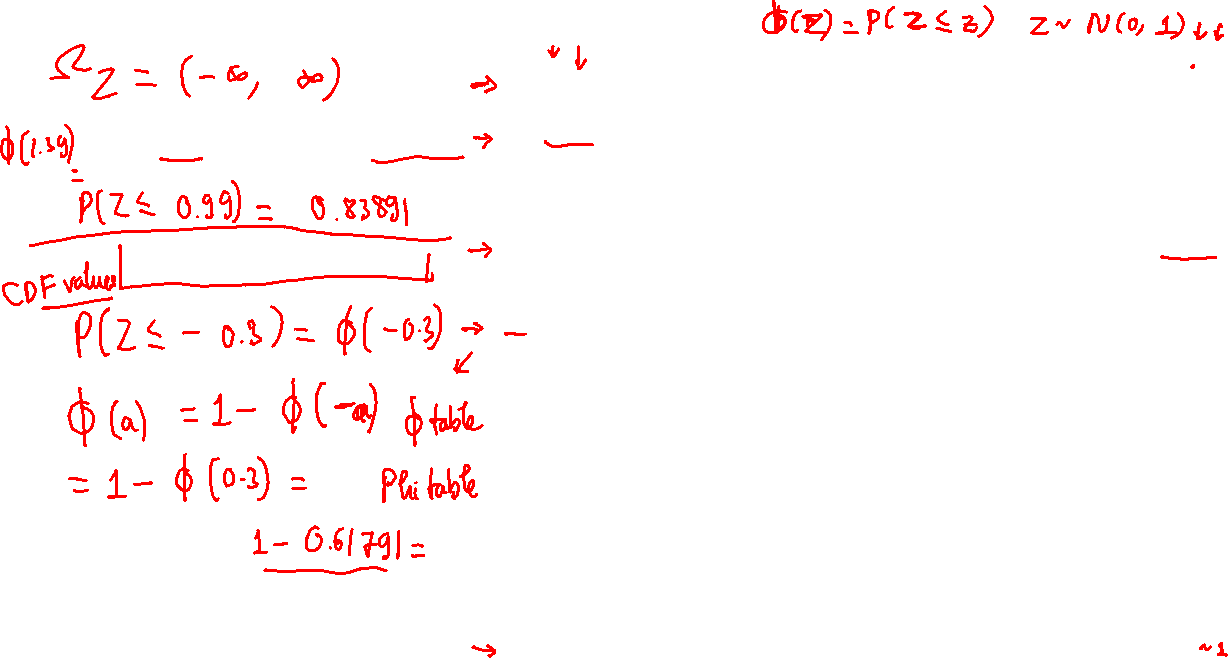 ϕ(z) = P(Z ≤ z) Z ~ N(0, 1) ↓↓
Ω_Z = (-∞, ∞) →
ϕ(1.39) →
=
P(Z ≤ 0.99) = 0.83891
→
CDF values
P(Z ≤ - 0.3) = ϕ(-0.3) → –
ϕ(a) = 1 - ϕ(-a) ϕ table
= 1 - ϕ(0.3) = Phi table
1 - 0.61791 =
→ ~1